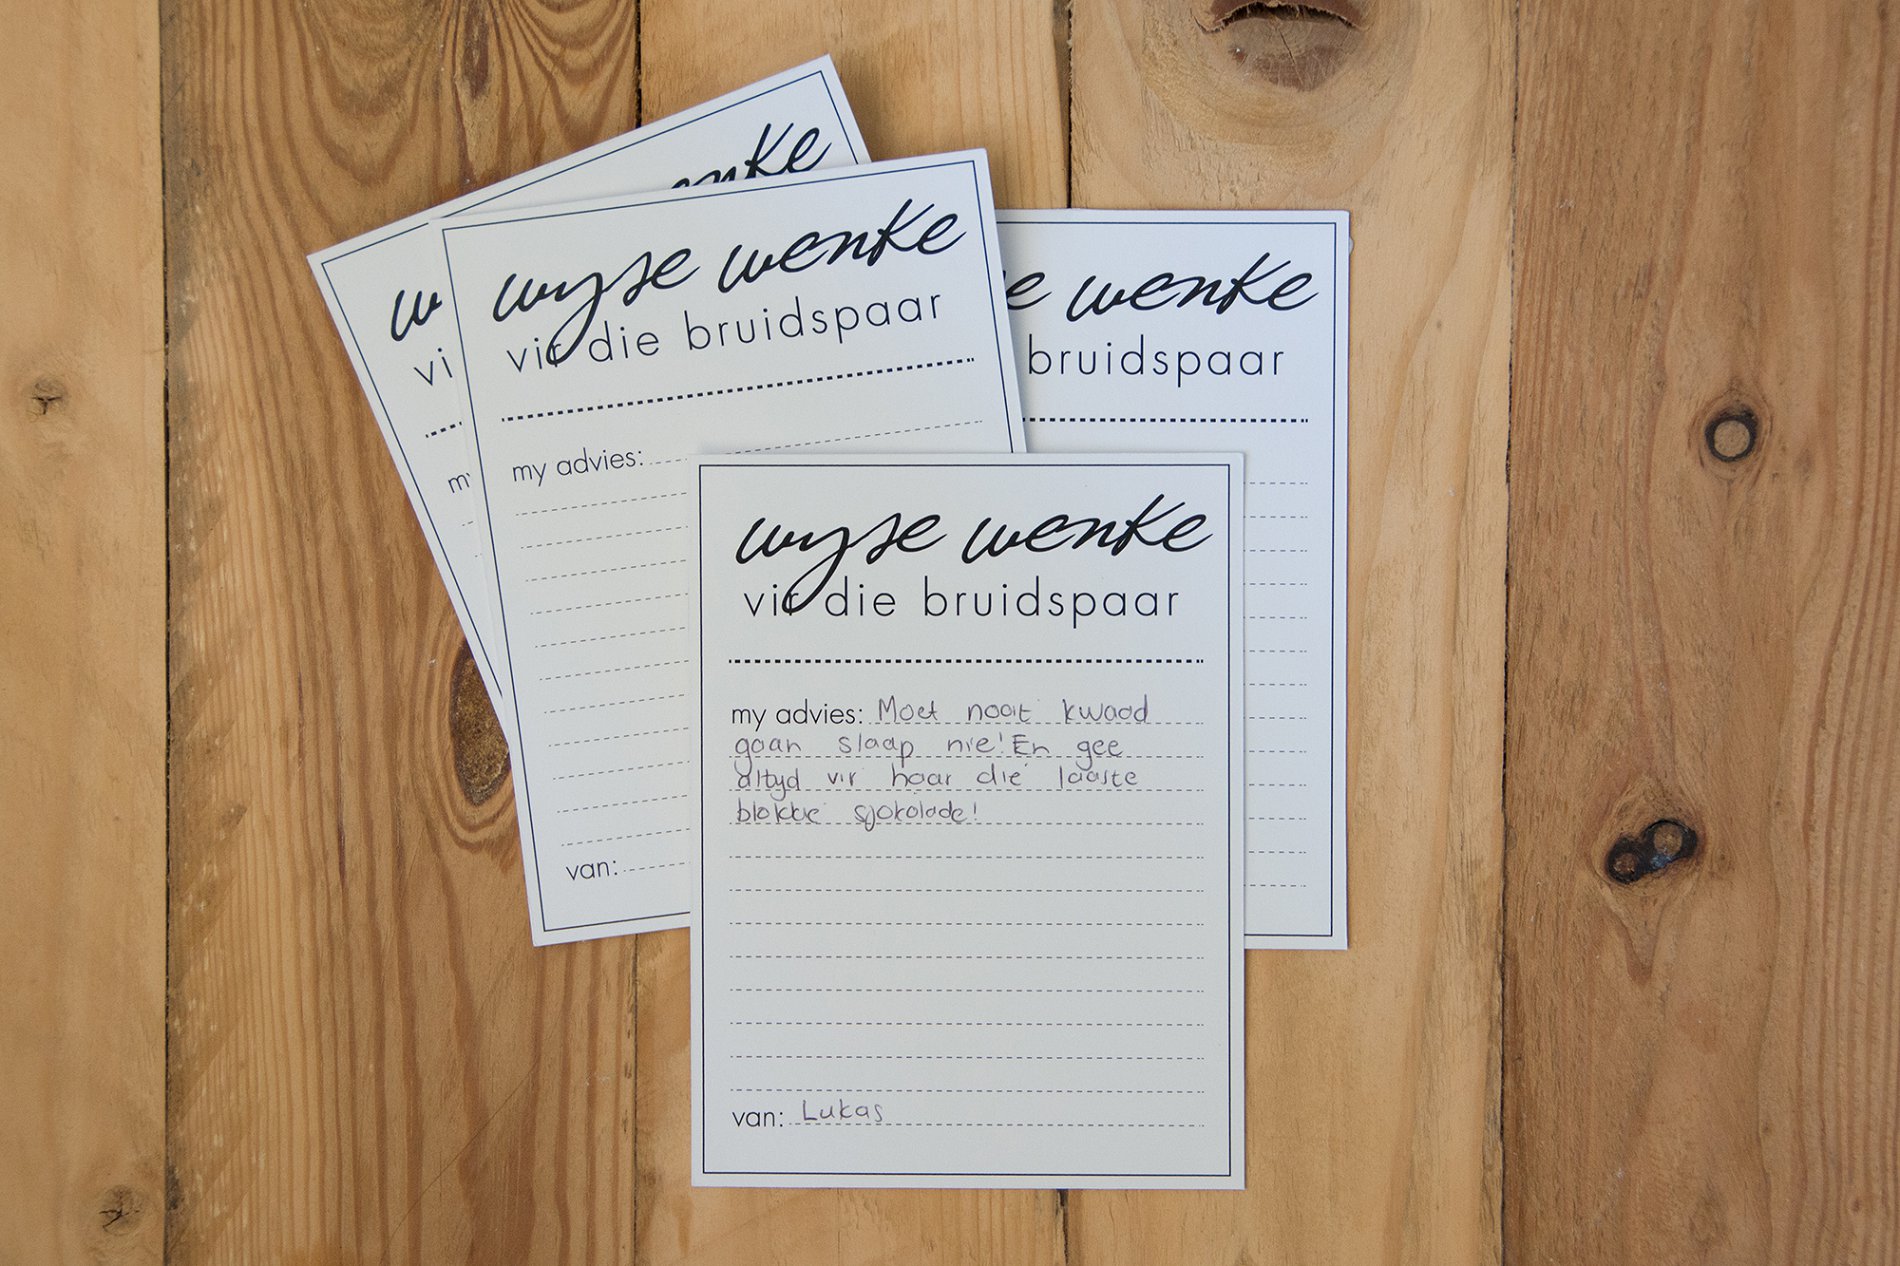 wenke
w
vi
m
wyse wenke
vir die bruidspaar
my advies:
van:
e wenke
bruidspaar
wyse wenke
vir die bruidspaar
my advies: Moet nooit kwaad
gaan slaap nie! En gee
altyd vir haar die laaste
blokkie sjokolade!
van: Lukas